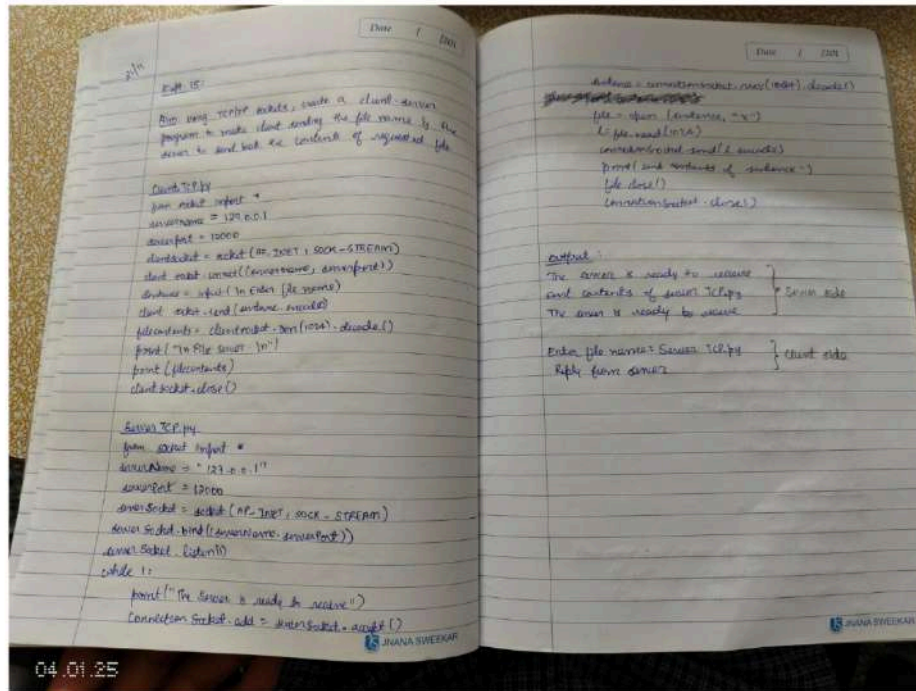 Date / /201
21/11
Expt. 15:
Aim using TCP/IP sockets, write a client-server
program to make client sending the file name & the
server to send back the contents of requested file
Client TCP.py
from socket import *
servername = 127.0.0.1
serverport = 12000
clientsocket = socket (AF-INET, SOCK-STREAM)
client socket.connect((servername, serverport))
sentence = input(\n Enter file name)
client socket.send(sentence.encode)
filecontents = clientsocket.recv(1024).decode()
print("\n File server \n")
print (filecontents)
client socket.close()
Server TCP.py
from socket import *
serverName = "127.0.0.1"
serverPort = 12000
serverSocket = socket (AF-INET, SOCK-STREAM)
server Socket.bind((serverName.serverPort))
server Socket.listen(1)
while 1:
print("The Server is ready to receive")
Connection Socket.add = serverSocket.accept()
JNANA SWEEKAR
Date / /201
sentence = connectionsocket.recv(1024).decode()
file = open (sentence, "r")
l = file.read(1024)
connectionSocket.send(l.encode)
print( sent contents of sentence.)
file close()
connectionSocket.close()
output:
The server is ready to receive
sent contents of server TCP.py
The server is ready to receive
Server side
Enter file names: Server TCP.py
Reply from server
Client side
JNANA SWEEKAR
04.01.25